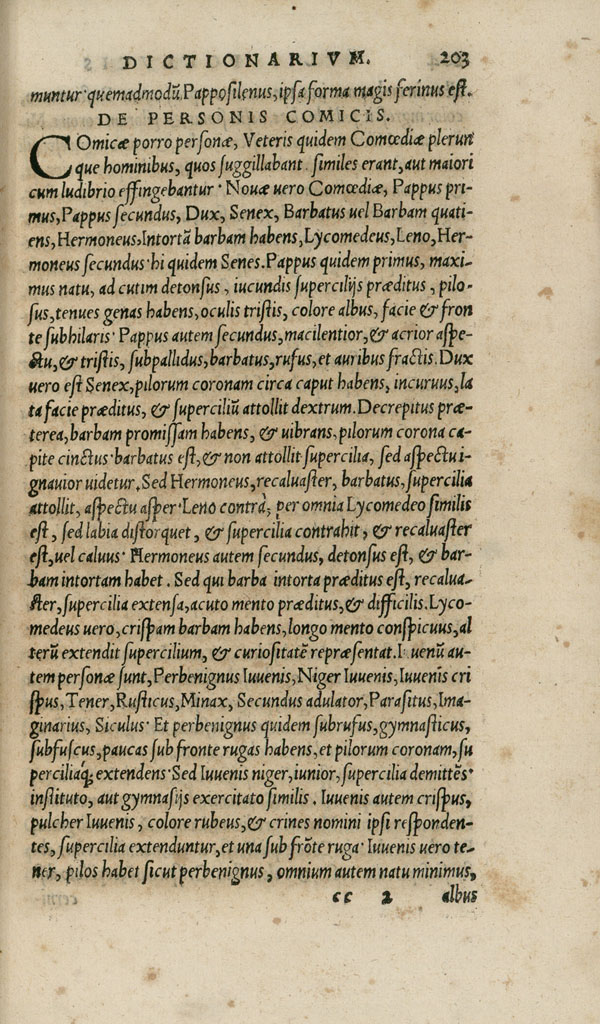 DICTIONARIVM. 203
muntur· quemadmodũ Pappoſilenus, ipſa forma magis ferinus eſt.
DE PERSONIS COMICIS.
COmicæ porro perſonæ, Veteris quidem Comœdiæ plerun
que hominibus, quos ſuggillabant ſimiles erant, aut maiori
cum ludibrio effingebantur· Nouæ uero Comœdiæ, Pappus pri-
mus, Pappus ſecundus, Dux, Senex, Barbatus uel Barbam quati-
ens, Hermoneus, Intortã barbam habens, Lycomedeus, Leno, Her-
moneus ſecundus· hi quidem Senes. Pappus quidem primus, maxi-
mus natu, ad cutim detonſus, iucundis ſupercilijs præditus, pilo-
ſus, tenues genas habens, oculis triſtis, colore albus, facie & fron
te ſubhilaris· Pappus autem ſecundus, macilentior, & acrior aſpe-
ctu, & triſtis, ſubpallidus, barbatus, rufus, et auribus fractis. Dux
uero eſt Senex, pilorum coronam circa caput habens, incuruus, la
ta facie præditus, & ſuperciliũ attollit dextrum. Decrepitus præ-
terea, barbam promiſſam habens, & uibrans, pilorum corona ca-
pite cinctus· barbatus eſt, & non attollit ſupercilia, ſed aſpectu i-
gnauior uidetur. Sed Hermoneus, recaluaſter, barbatus, ſupercilia
attollit, aſpectu aſper· Leno contrà, per omnia Lycomedeo ſimilis
eſt, ſed labia diſtorquet, & ſupercilia contrahit, & recaluaſter
eſt, uel caluus· Hermoneus autem ſecundus, detonſus eſt, & bar-
bam intortam habet. Sed qui barba intorta præditus eſt, recalua-
ſter, ſupercilia extenſa, acuto mento præditus, & difficilis. Lyco-
medeus uero, criſpam barbam habens, longo mento conſpicuus, al
terũ extendit ſupercilium, & curioſitatẽ repræſentat. Iuuenũ au-
tem perſonæ ſunt, Perbenignus Iuuenis, Niger Iuuenis, Iuuenis cri
ſpus, Tener, Ruſticus, Minax, Secundus adulator, Paraſitus, Ima-
ginarius, Siculus· Et perbenignus quidem ſubrufus, gymnaſticus,
ſubfuſcus, paucas ſub fronte rugas habens, et pilorum coronam, ſu
perciliaq; extendens· Sed Iuuenis niger, iunior, ſupercilia demittẽs·
inſtituto, aut gymnaſijs exercitato ſimilis. Iuuenis autem criſpus,
pulcher Iuuenis, colore rubeus, & crines nomini ipſi reſponden-
tes, ſupercilia extenduntur, et una ſub frõte ruga· Iuuenis uero te-
ner, pilos habet ſicut perbenignus, omnium autem natu minimus,
cc 2 albus